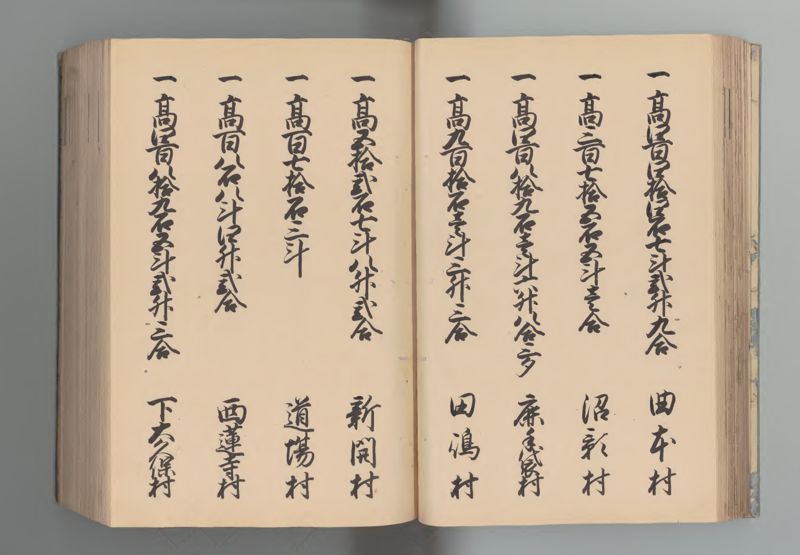 一 高四百四拾四石七斗弐升九合 曲本村
一 高三百七拾五石五斗壱合 沼影村
一 高四百八拾九石壱斗六升八合三夕 鹿手袋村
一 高九百拾石壱斗三升三合 田嶋村
一 高五拾弐石七斗八升弐合 新開村
一 高百七拾石三斗 道場村
一 高百八石八斗四升弐合 西蓮寺村
一 高四百八拾九石五斗弐升三合 下大久保村